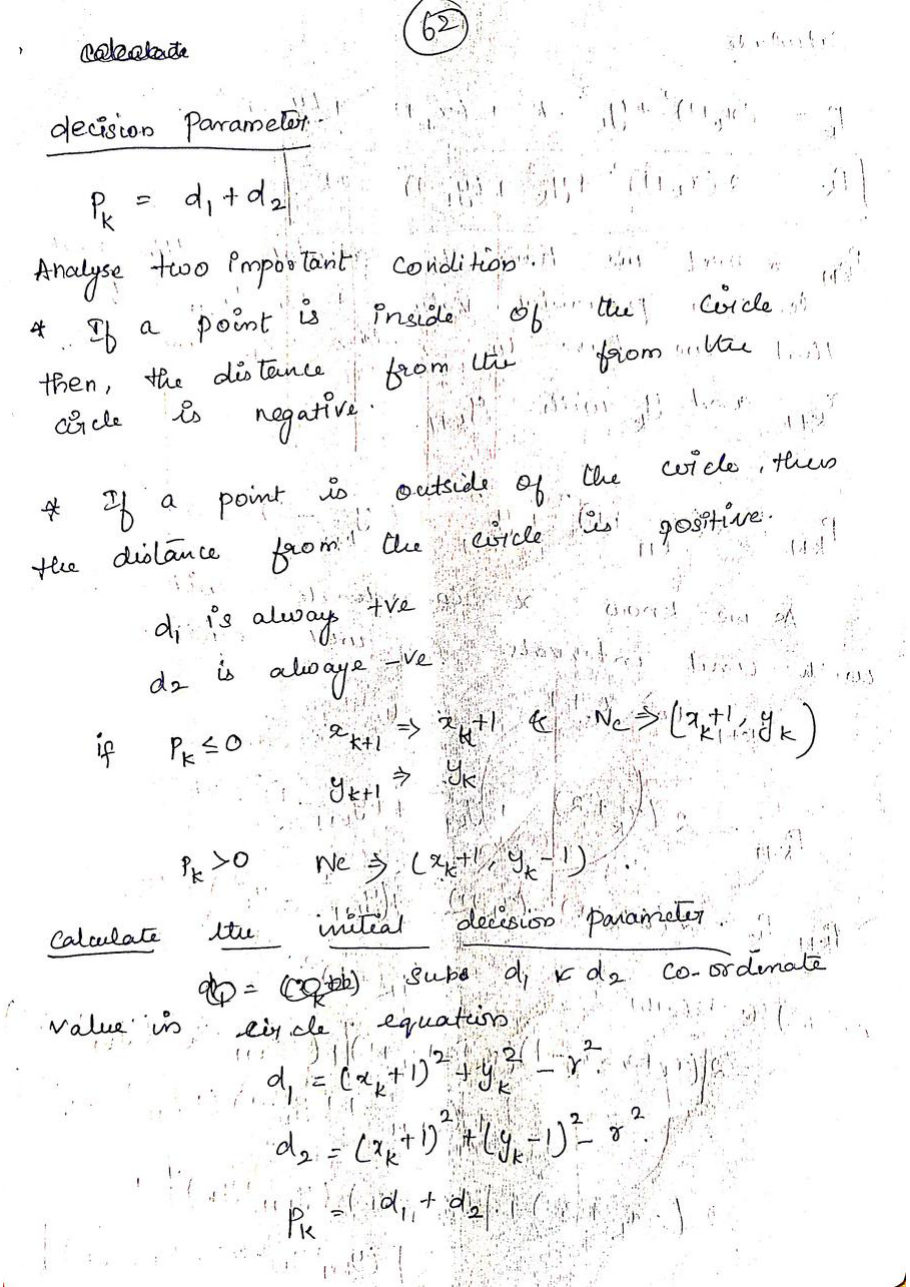 62
decision Parameter.
P_k = d₁ + d₂
Analyse two important condition.
* If a point is inside of the circle
then, the distance from the from the
circle is negative.
* If a point is outside of the circle, then
the distance from the circle is positive.
d₁ is always +ve
d₂ is always -ve
if P_k ≤ 0 x_{k+1} ⇒ x_k+1 & Nc ⇒ (x_k+1, y_k)
y_{k+1} ⇒ y_k
P_k > 0 Nc ⇒ (x_k+1, y_k-1).
Calculate the initial decision parameter.
Subs d₁ & d₂ co-ordinate
value in circle equation
d₁ = (x_k+1)² + y_k² - r².
d₂ = (x_k+1)² + (y_k-1)² - r².
P_k = d₁ + d₂